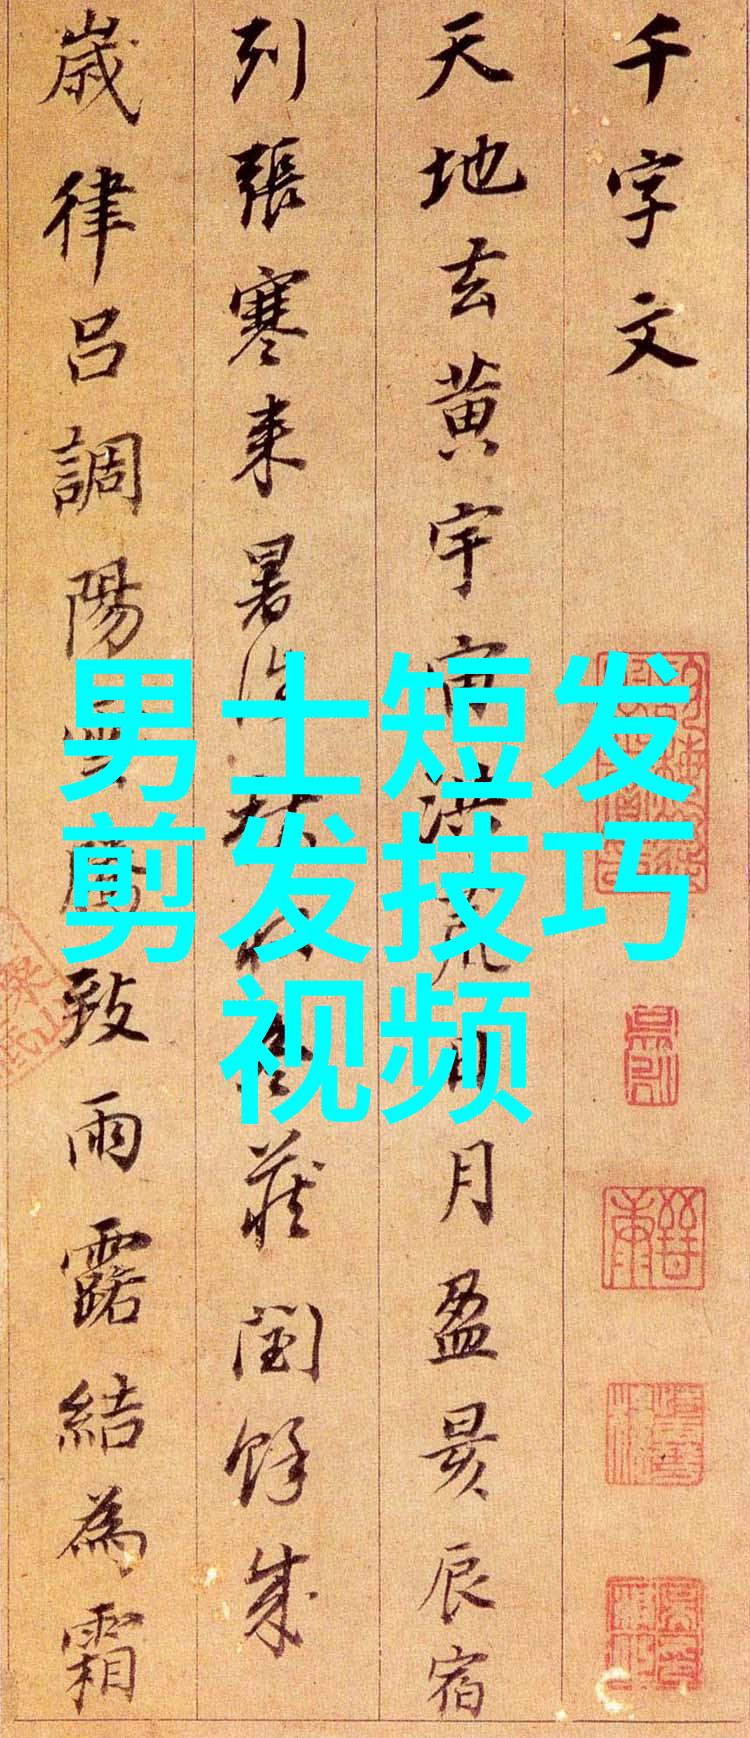 千字文
天地玄黄宇宙洪荒日月盈昃辰宿
列張寒来暑往秋收冬蔵閏餘成
歳律吕調陽雲騰致雨露結為霜
男士短发
剪发技巧
视频